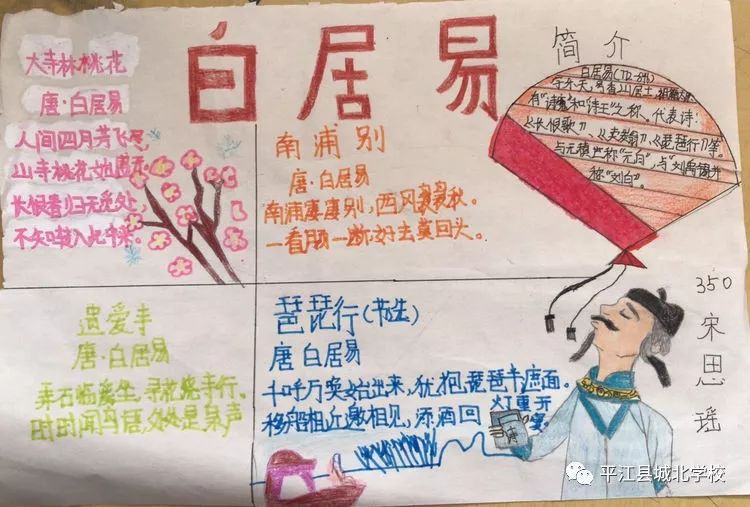 白居易
大寺林桃花
唐·白居易
人间四月芳飞尽
山寺桃花始盛开
长恨春归无觅处,
不知转入此中来。
南浦别
唐·白居易
南浦凄凄别,西风袅袅秋。
一看肠一断好去莫回头。
简介
白居易(772-846)
字乐天,号香山居士,祖籍太原
有"诗魔"和"诗王"之称、代表诗:
《长恨歌》、《卖炭翁》、《琵琶行》等。
与元稹世称"元白",与"刘禹锡并
称"刘白"。
遗爱寺
唐·白居易
弄石临溪坐,寻花绕寺行。
时时闻鸟语,处处是泉声
琵琶行(节选)
唐 白居易
千呼万唤始出来,犹抱琵琶半遮面。
移船相近邀相见,添酒回灯重开
宴。
350
宋思瑶
平江县城北学校